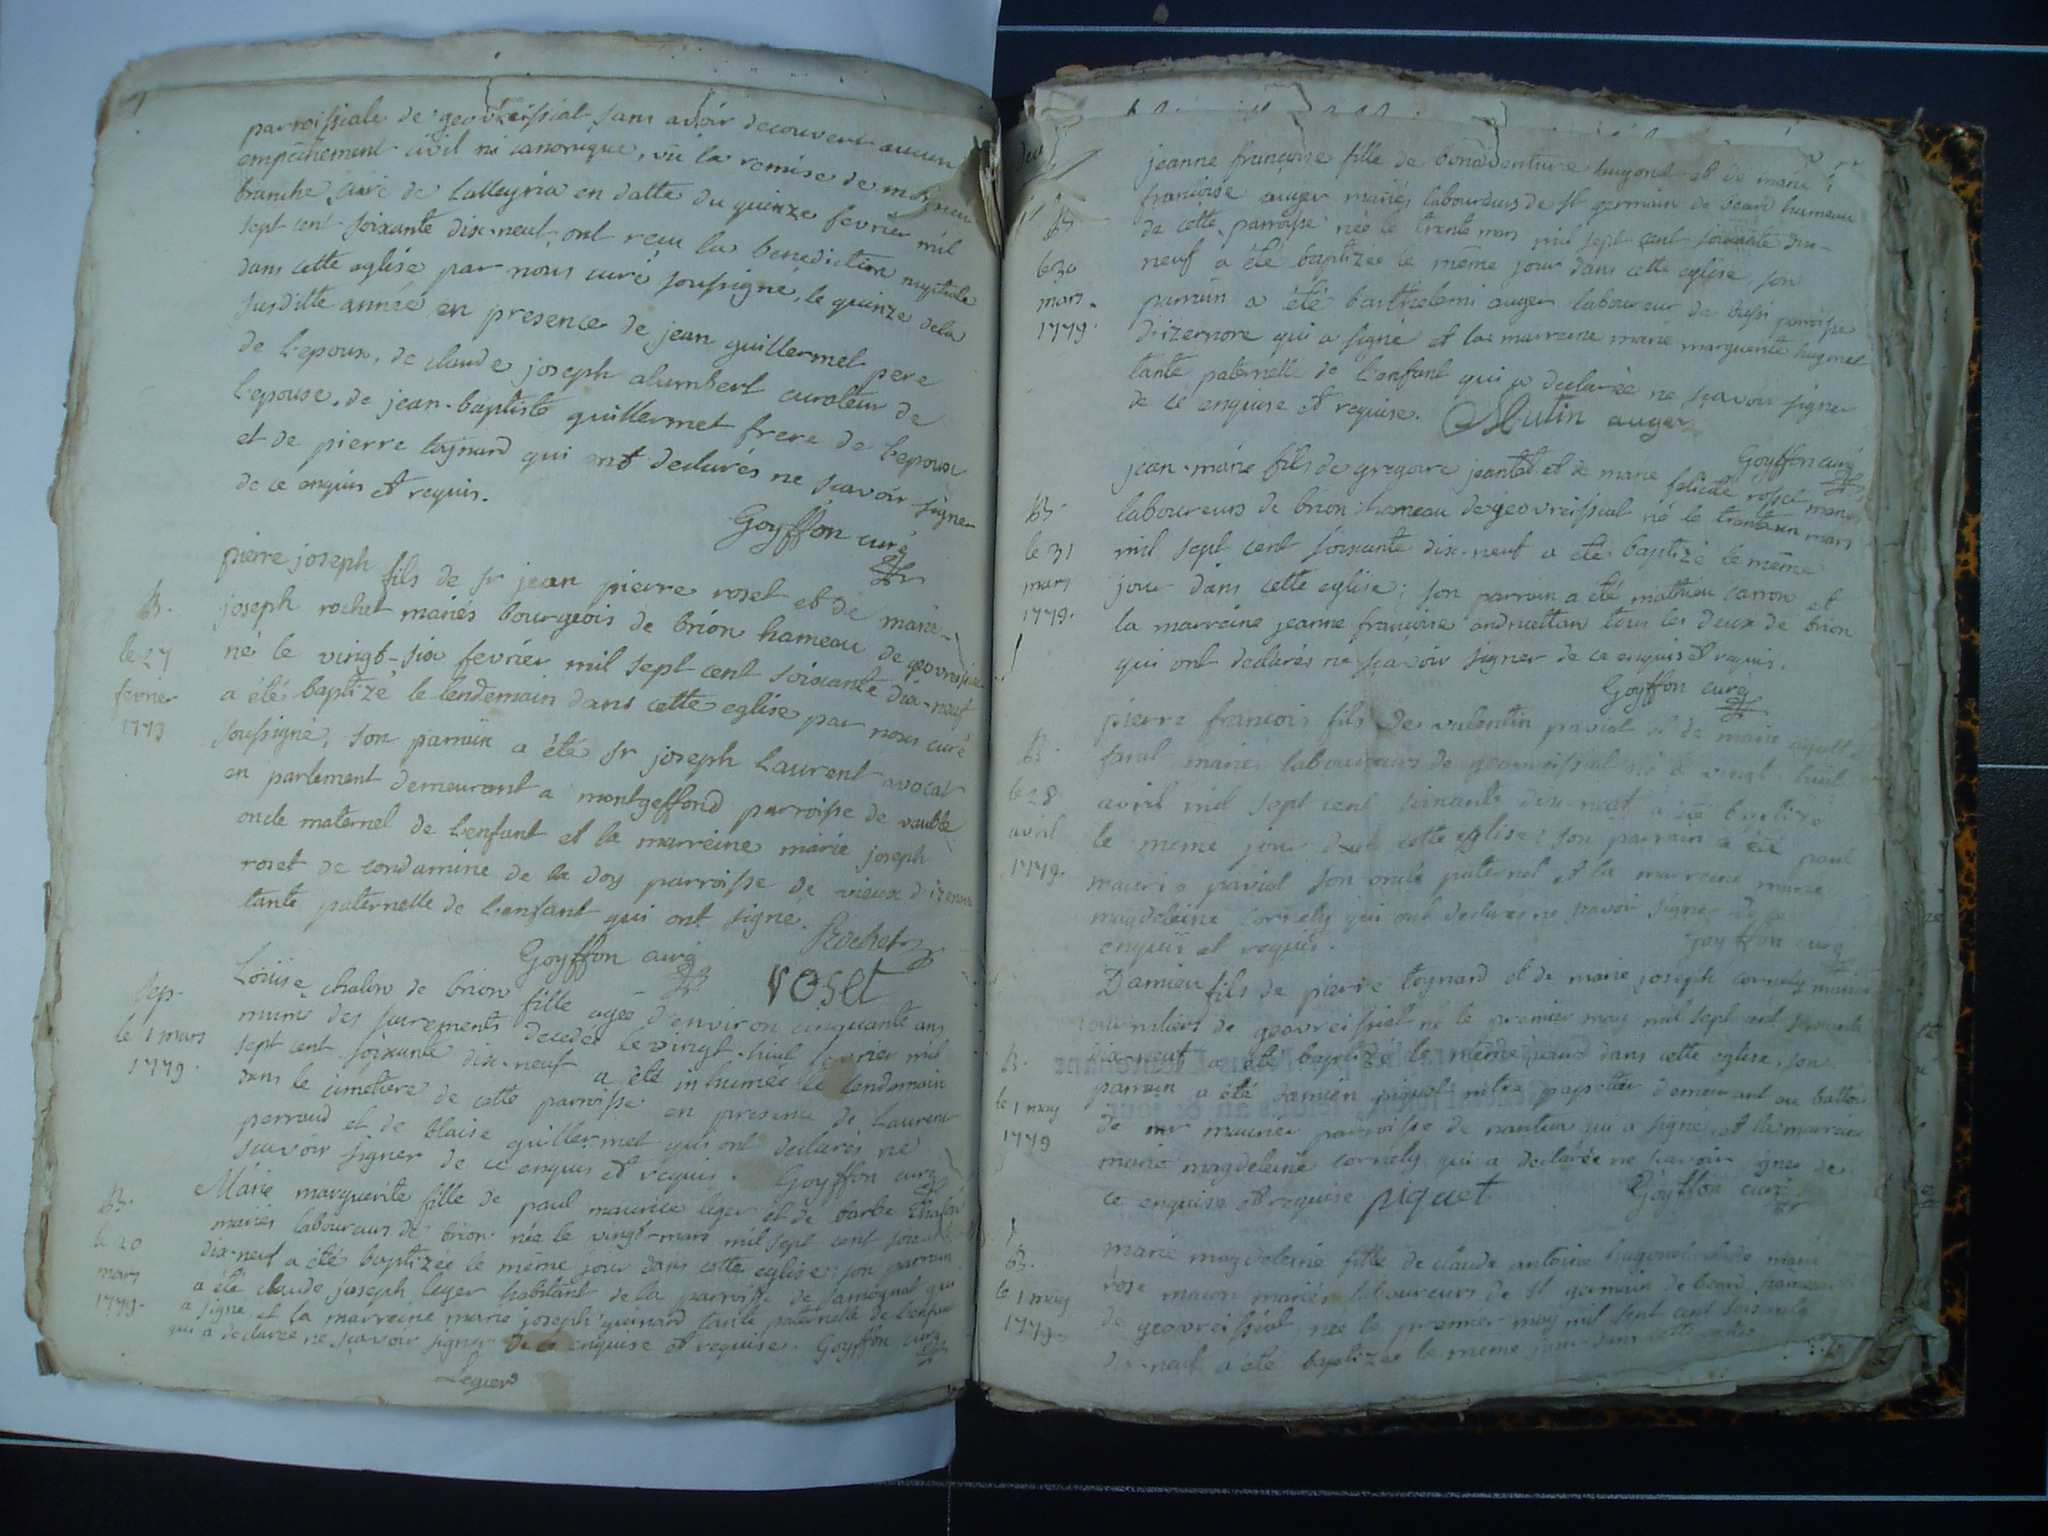 parroissiale de geovreissiat sans avoir decouvert aucun
empechement civil ni canonique, vû la remise de
branche curé de Lalleyria en datte du quinze fevrier mil
sept cent soixante dix-neuf, ont reçu la benediction nuptiale
dans cette eglise par nous curé soussigné, le quinze de la
susditte année en presence de jean guillermet pere
de l'epoux, de claude joseph alumbert curateur de
l'epouse, de jean-baptiste guillermet frere de l'epoux
et de pierre toynard qui ont declarés ne sçavoir signer
de ce enquis et requis.
Goyffon curé
B.
le 27
fevrier
1779
pierre joseph fils de sr jean pierre roset et de marie
joseph rochet mariés bourgeois de brion hameau de geovreissiat
né le vingt-six fevrier mil sept cent soixante dix-neuf
a été baptizé le lendemain dans cette eglise par nous curé
soussigné, son parrain a été sr joseph Laurent avocat
en parlement demeurant a montgeffond parroisse de
oncle maternel de l'enfant et la marreine marie joseph
roset de condamine de la doy parroisse de vieux d'izenave
tante paternelle de l'enfant qui ont signé.
Rochet
Goyffon curé
roset
sep.
le 1 mars
1779.
Loüise chalin de brion fille agée d'environ cinquante ans
munie des sacrements decedée le vingt-huit fevrier mil
sept cent soixante dix-neuf a été inhumée le lendemain
dans le cimetiere de cette parroisse en presence de Laurent
perraud et de blaise guillermet qui ont declarés ne
sçavoir signer de ce enquis et requis. Goyffon curé
B.
le 20
mars
1779.
Marie marguerite fille de paul maurice leger et de barbe
mariés laboureurs de brion née le vingt mars mil sept cent soixante
dix-neuf a été baptizée le même jour dans cette eglise; son parrain
a été claude joseph leger habitant de la parroisse de samognat qui
a signé et la marreine marie joseph guinard tante paternelle de l'enfant
qui a declarée ne sçavoir signer de ce enquise et requise. Goyffon curé
Leger
B.
le 30
mars.
1779.
jeanne françoise fille de bonaventure hugonet et de marie
françoise auger mariés laboureurs de st germain de beard hameau
de cette parroisse née le trente mars mil sept cent soixante dix-
neuf a été baptizée le même jour dans cette eglise, son
parrain a été barthelemi auger laboureur de bussi parroisse
d'izernore qui a signé et la marreine marie marguerite hugonet
tante paternelle de l'enfant qui a declarée ne sçavoir signer
de ce enquise et requise. auger
Goyffon curé
B.
le 31
mars
1779.
jean-marie fils de gregoire jeantet et de marie felicité rosset mariés
laboureurs de brion hameau de geovreissiat né le trente un mars
mil sept cent soixante dix-neuf a été baptizé le même
jour dans cette eglise; son parrain a été mathieu carron et
la marreine jeanne françoise tous les deux de brion
qui ont declarés ne sçavoir signer de ce enquis et requis.
Goyffon curé
B.
le 28
avril
1779.
pierre françois fils de valentin paviot et de marie
mariés laboureurs de geovreissiat né le vingt huit
avril mil sept cent soixante dix-neuf a été baptizé
le même jour dans cette eglise: son parrain a été paul
mauris paviot son oncle paternel et la marreine marie
magdeleine cornely qui ont declarés ne sçavoir signer de ce
enquis et requis. Goyffon curé
B.
le 1 may
1779
Damien fils de pierre toynard et de marie joseph cornely mariés
journaliers de geovreissiat né le premier may mil sept cent soixante
dix-neuf a été baptizé le même jour dans cette eglise, son
parrain a été damien piquet mtre papetier demeurant au battoir
de mr maurier parroisse de nantua qui a signé, et la marreine
marie magdeleine cornely qui a declarée ne sçavoir signer de
ce enquise et requise piquet Goyffon curé
B.
le 1 may
1779.
marie magdeleine fille de claude antoine hugonet et de marie
rose macon mariés laboureurs de st germain de beard hameau
de geovreissiat née le premier may mil sept cent soixante
dix-neuf a été baptizée le même jour dans cette eglise